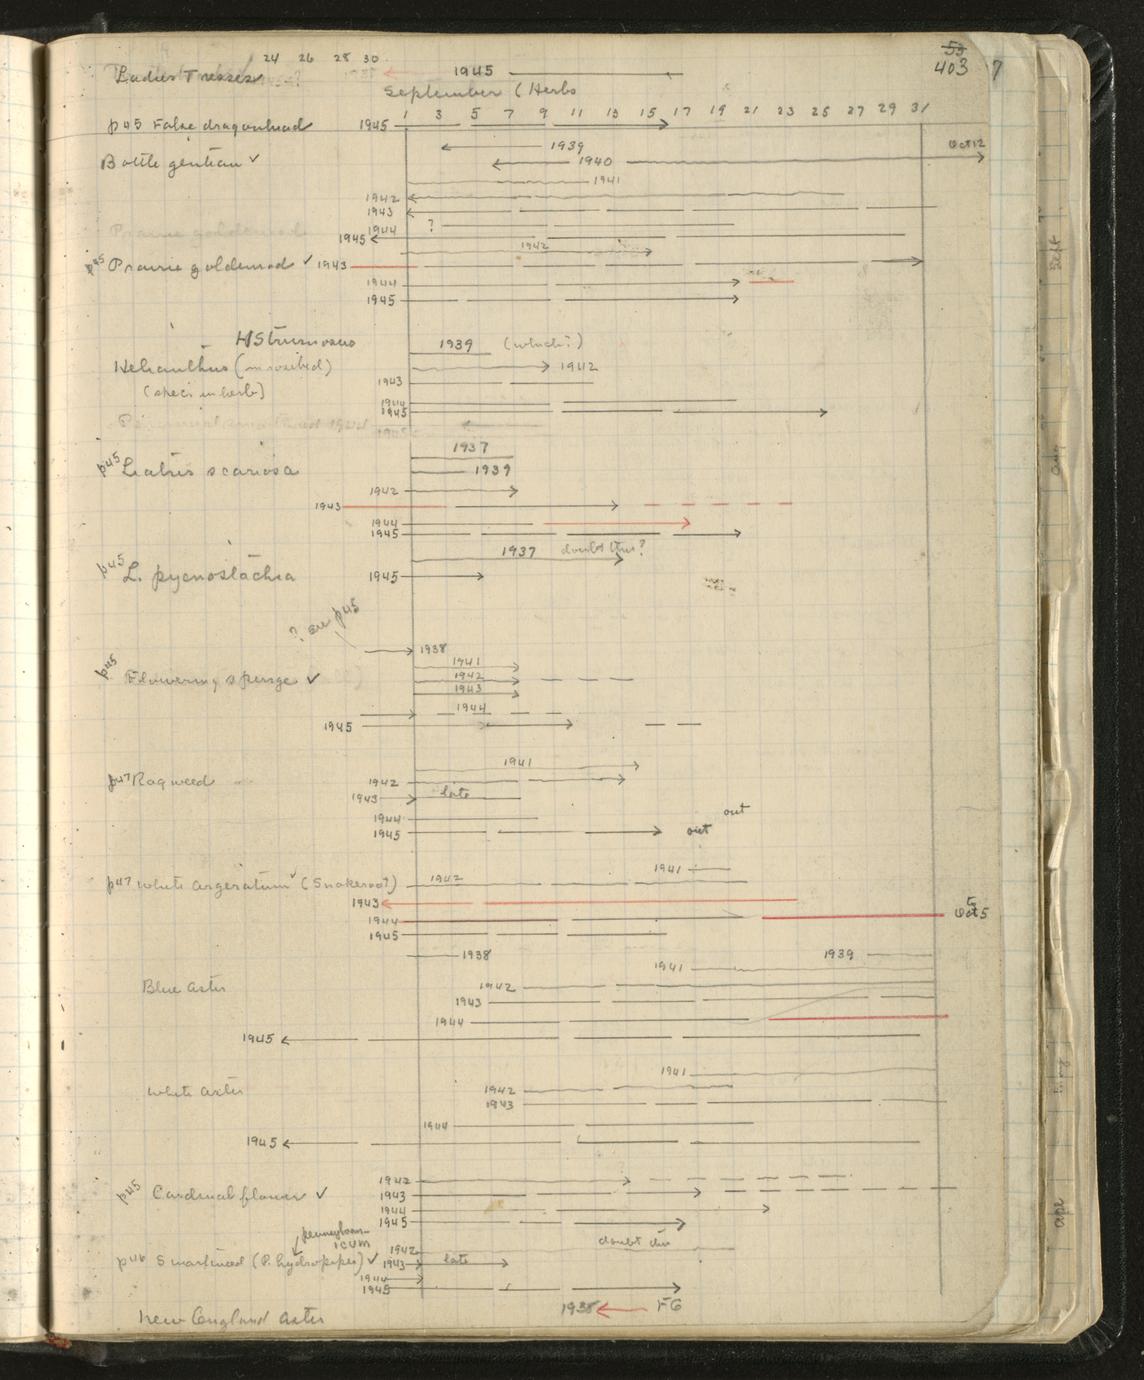 24 26 28 30
53
403 7
Ladies Tresses
1945
September (Herbs
1 3 5 7 9 11 13 15 17 19 21 23 25 27 29 31
p45 False dragonhead 1945
1939 Oct 12
Bottle gentian ✓ 1940
1941
1942
1943
1944 ?
Prairie goldenrod 1945
1942
p45 Prairie goldenrod ✓ 1943
1944
1945
H Strumosus 1939 (which?)
Helianthus ( ) 1942
(spec. in herb) 1943
1944
1945
1945
1937
p45 Liatris scariosa 1939
1942
1943
1944
1945
1937 doubt this?
p45 L. pycnostachia 1945
? see p45
1938
p45 Flowering spurge ✓ 1941
1942
1943
1944
1945
1941
p47 Ragweed 1942
1943 late
1944 out
1945 out
1941
p47 White argeratum ✓ (Snakeroot) 1942
1943
1944 to Oct 5
1945
1938 1939
1941
Blue Aster 1942
1943
1944
1945
1941
White Aster 1942
1943
1944
1945
p45 Cardinal flower ✓ 1942
1943
1944
1945
pennsylvanicum doubt this
1942
p46 Smartweed (P. hydropiper) ✓ 1943 late
1944
1945
1938 FG
New England Aster
Sept
Aug
Apr